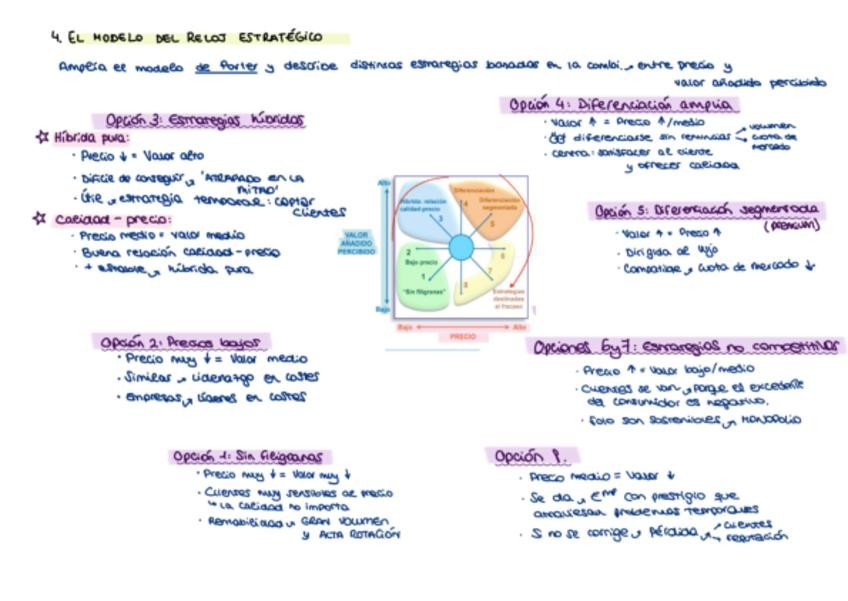 4. EL MODELO DEL RELOJ ESTRATÉGICO
Amplía el modelo de Porter y describe distintas estrategias basadas en la combi. → entre precio y
valor añadido percibido
Opción 3: Estrategias híbridas
☆ Híbrida pura:
· Precio ↓ = Valor alto
· Difícil de conseguir → "ATRAPADO EN LA
MITAD"
· Útil → estrategia temporal: captar
clientes
☆ Calidad - precio:
· Precio medio = valor medio
· Buena relación calidad-precio
· + estable → híbrida pura
Opción 2: Precios bajos
· Precio muy ↓ = Valor medio
· Similar → Liderazgo en costes
· Empresas → Líderes en costes
Opción 1: Sin filigranas
· Precio muy ↓ = Valor muy ↓
· Clientes muy sensibles al precio
↳ La calidad no importa
· Rentabilidad → GRAN VOLUMEN
y ALTA ROTACIÓN
Alto
VALOR
AÑADIDO
PERCIBIDO
Bajo
Híbrida: relación
calidad-precio
3
Diferenciación
4
Diferenciación
segmentada
5
2
Bajo precio
1
"Sin filigranas"
6
7
8
Estrategias
destinadas
al fracaso
Bajo
Alto
PRECIO
Opción 4: Diferenciación amplia
· Valor ↑ = Precio ↑/medio
· diferenciarse sin renuncias → volumen
cuota de
mercado
· Centra: satisfacer al cliente
y ofrecer calidad
Opción 5: Diferenciación segmentada
(PREMIUM)
· Valor ↑ = Precio ↑
· Dirigida al lujo
· Compatible → Cuota de mercado ↓
Opciones 6 y 7: Estrategias no competitivas
· Precio ↑ = Valor bajo/medio
· Clientes se van → porque el excedente
del consumidor es negativo.
· Solo son sostenibles → MONOPOLIO
Opción 8.
· Precio medio = Valor ↓
· Se da → Emp con prestigio que
atraviesan problemas temporales
· Si no se corrige → Pérdida → clientes
reputación